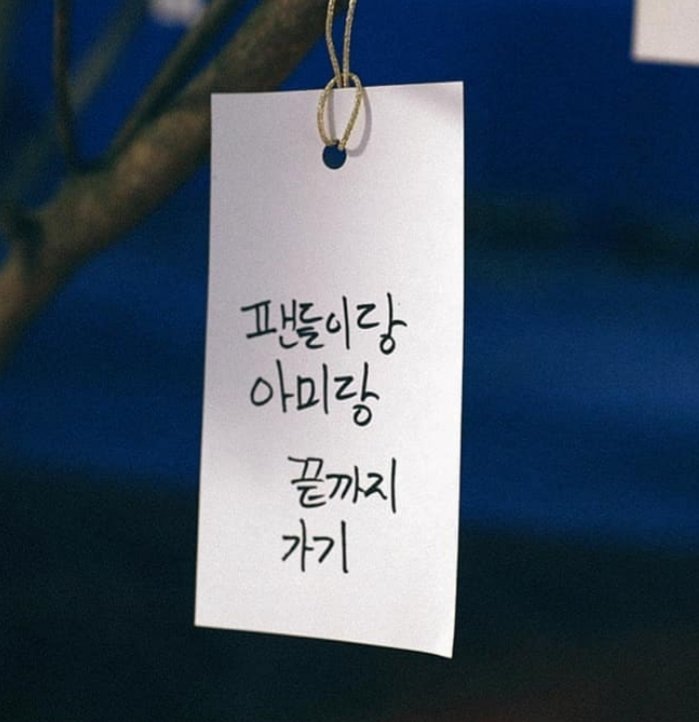 팬들이랑
아미랑
끝까지
가기